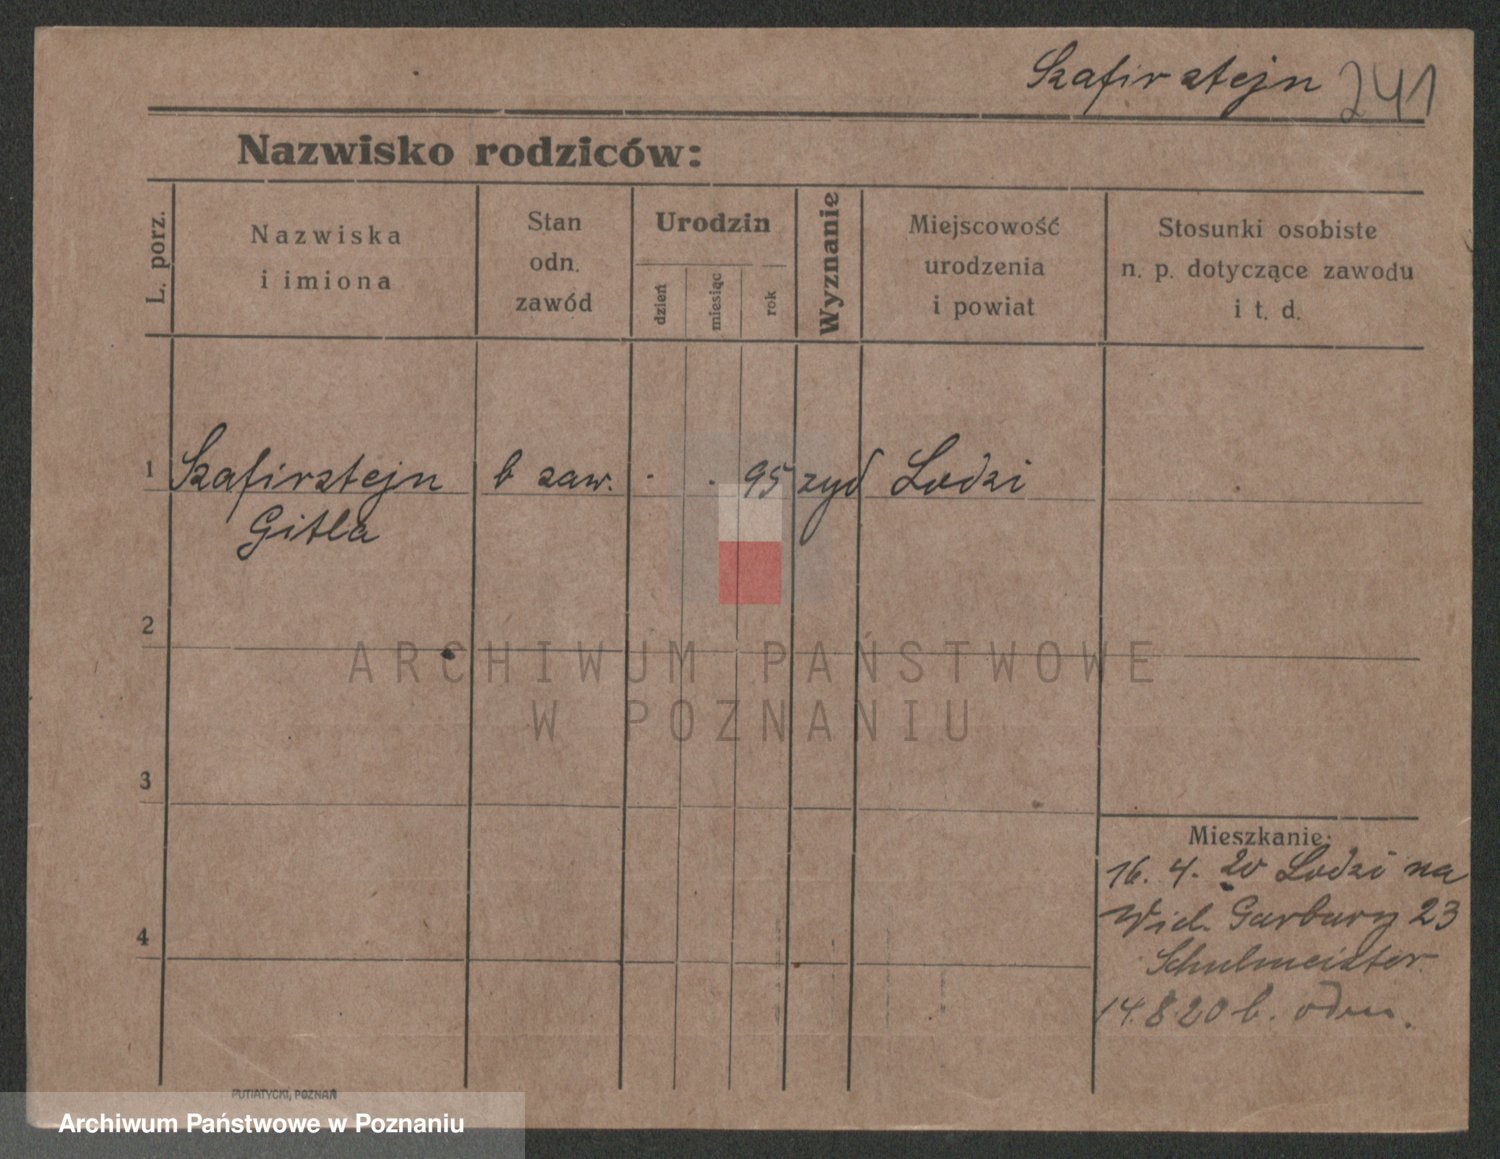 Szafirstejn 241
Nazwisko rodziców:
L. porz.
Nazwiska
i imiona
Stan
odn.
zawód
Urodzin
dzień
miesiąc
rok
Wyznanie
Miejscowość
urodzenia
i powiat
Stosunki osobiste
n. p. dotyczące zawodu
i t. d.
1 Szafirstejn b zaw. . . 95 zyd Lodzi
Gitla
2
ARCHIWUM PAŃSTWOWE
W POZNANIU
3
Mieszkanie:
16. 4. 20 Lodzi na
Wiel. Garbary 23
4
Schulmeister
14.8.20 b. odm.
PUTIATYCKI, POZNAŃ
Archiwum Państwowe w Poznaniu